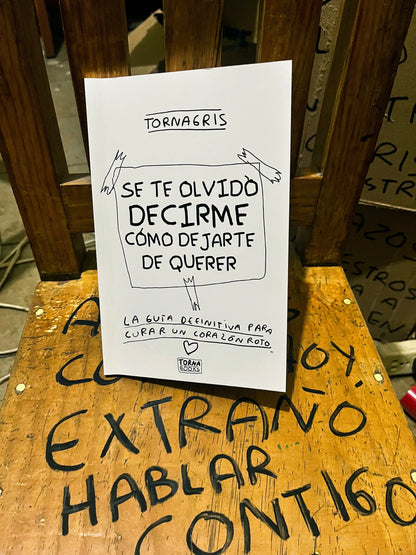 TORNAGRIS
SE TE OLVIDÓ
DECIRME
CÓMO DEJARTE
DE QUERER
LA GUÍA DEFINITIVA PARA
CURAR UN CORAZÓN ROTO.
TORNA
BOOKS
HOY
EXTRAÑO
HABLAR
CONTIGO